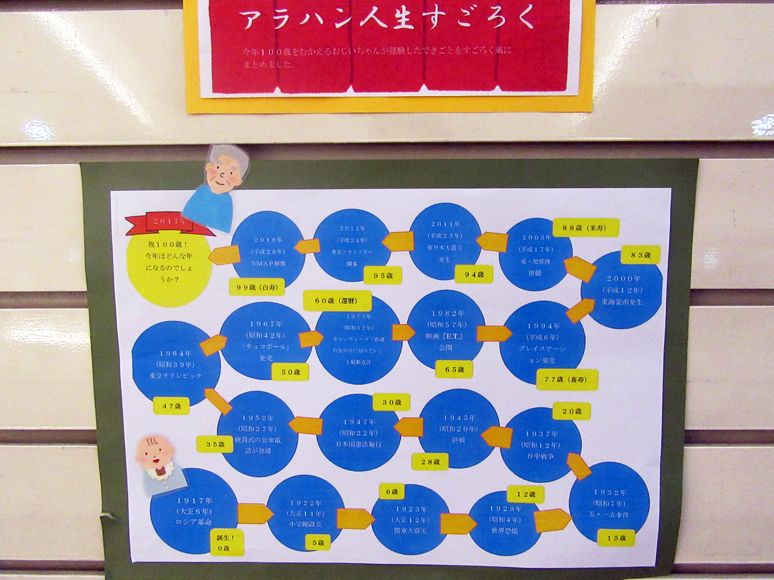 アラハン人生すごろく
今年100歳をむかえるおじいちゃんが経験したできごとをすごろく風に
まとめました。
1917年
(大正6年)
ロシア革命
誕生!
0歳
1922年
(大正11年)
小学館設立
5歳
1923年
(大正12年)
関東大震災
6歳
1929年
(昭和4年)
世界恐慌
12歳
1932年
(昭和7年)
五・一五事件
15歳
1937年
(昭和12年)
日中戦争
20歳
1945年
(昭和20年)
終戦
28歳
1947年
(昭和22年)
日本国憲法施行
30歳
1952年
(昭和27年)
硬貨式の公衆電
話が登場
35歳
1964年
(昭和39年)
東京オリンピック
47歳
1967年
(昭和42年)
「チョコボール」
発売
50歳
1977年
(昭和52年)
キャンディーズ「普通
の女の子に戻りたい」
と解散宣言
60歳(還暦)
1982年
(昭和57年)
映画『E.T.』
公開
65歳
1994年
(平成6年)
プレイステーシ
ョン発売
77歳(喜寿)
2000年
(平成12年)
東海豪雨発生
83歳
2005年
(平成17年)
愛・地球博
開催
88歳(米寿)
2011年
(平成23年)
東日本大震災
発生
94歳
2012年
(平成24年)
東京スカイツリー
開業
95歳
2016年
(平成28年)
SMAP解散
99歳(白寿)
2017年
祝100歳!
今年はどんな年
になるのでしょ
うか?